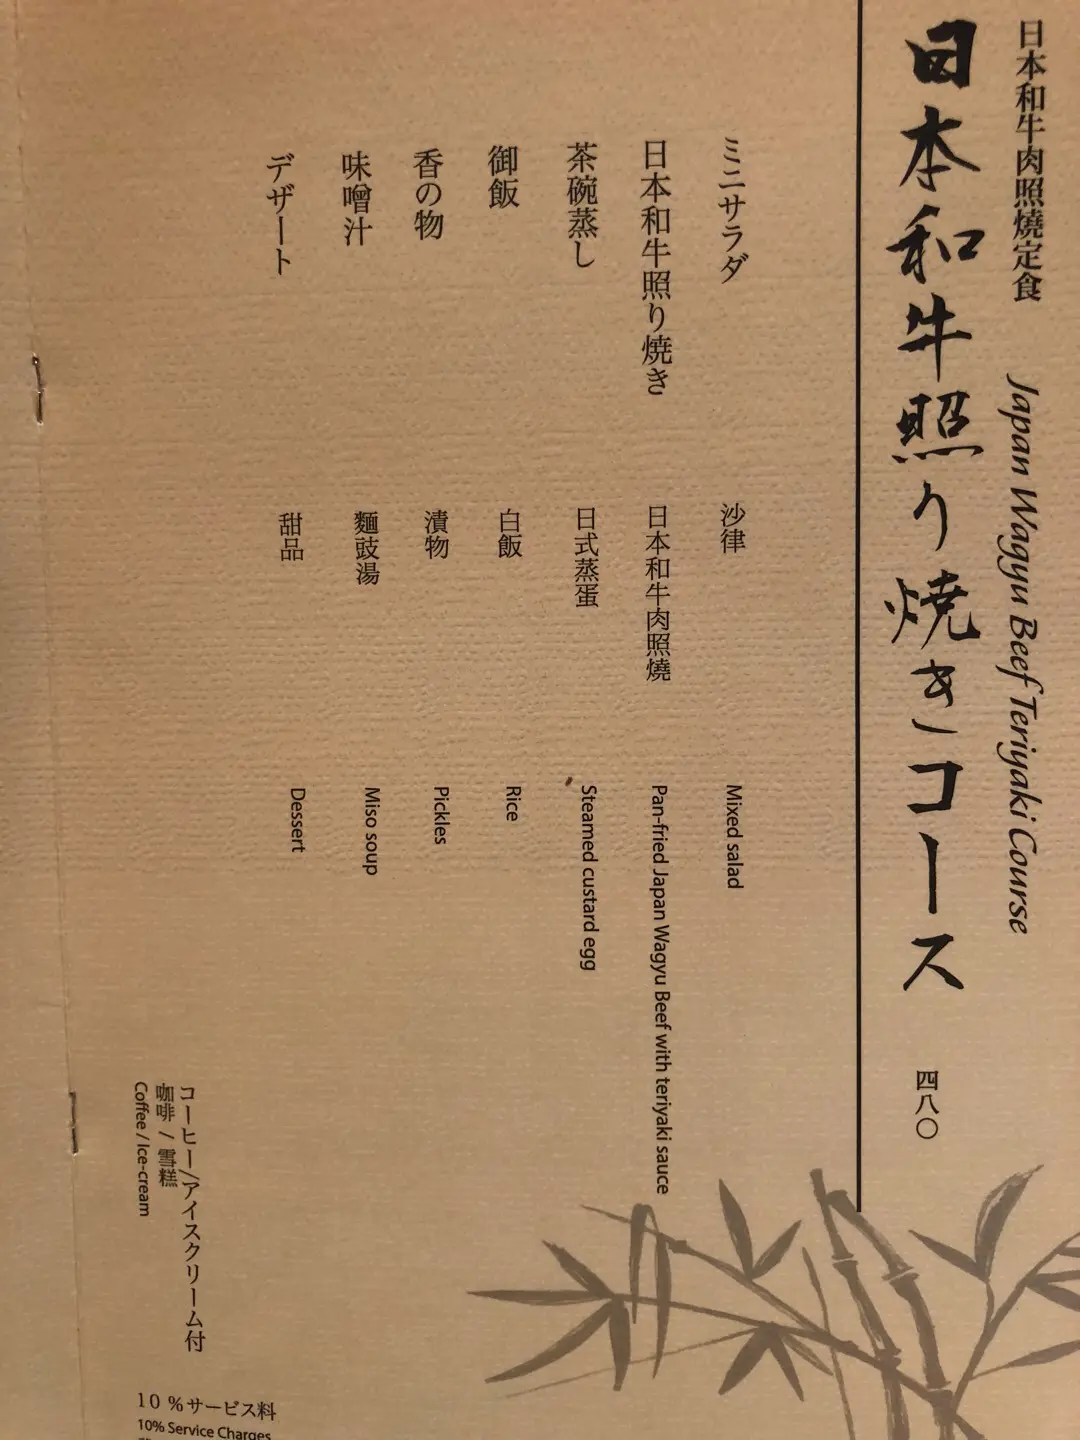 日本和牛肉照燒定食 Japan Wagyu Beef Teriyaki Course
日本和牛照り焼きコース 四八〇
ミニサラダ 沙律 Mixed salad
日本和牛照り焼き 日本和牛肉照燒 Pan-fried Japan Wagyu Beef with teriyaki sauce
茶碗蒸し 日式蒸蛋 Steamed custard egg
御飯 白飯 Rice
香の物 漬物 Pickles
味噌汁 麵豉湯 Miso soup
デザート 甜品 Dessert
コーヒー/アイスクリーム付
咖啡 / 雪糕
Coffee / Ice-cream
10 %サービス料
10% Service Charges